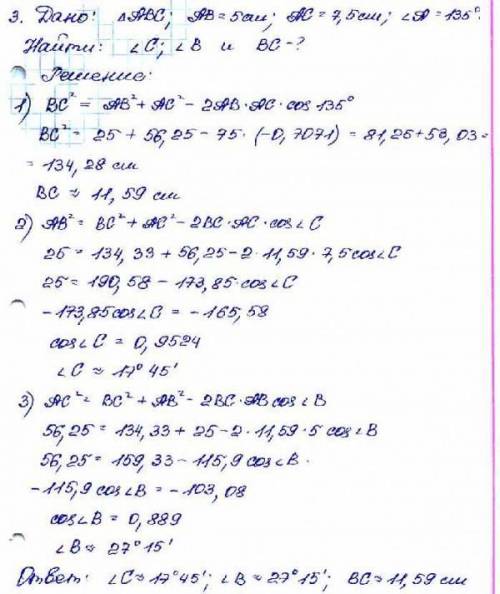 3. Дано: △ABC; AB = 5см; AC = 7,5см; ∠A = 135°.
Найти: ∠C; ∠B и BC - ?
Решение:
1) BC² = AB² + AC² - 2AB·AC·cos 135°
BC² = 25 + 56,25 - 75·(-0,7071) = 81,25 + 53,03 =
= 134,28 см
BC ≈ 11,59 см
2) AB² = BC² + AC² - 2BC·AC·cos∠C
25 = 134,33 + 56,25 - 2·11,59·7,5cos∠C
25 = 190,58 - 173,85·cos∠C
-173,85cos∠C = -165,58
cos∠C = 0,9524
∠C ≈ 17°45'
3) AC² = BC² + AB² - 2BC·AB cos∠B
56,25 = 134,33 + 25 - 2·11,59·5 cos∠B
56,25 = 159,33 - 115,9 cos∠B.
-115,9 cos∠B = -103,08
cos∠B = 0,889
∠B ≈ 27°15'
Ответ: ∠C ≈ 17°45'; ∠B ≈ 27°15'; BC ≈ 11,59 см